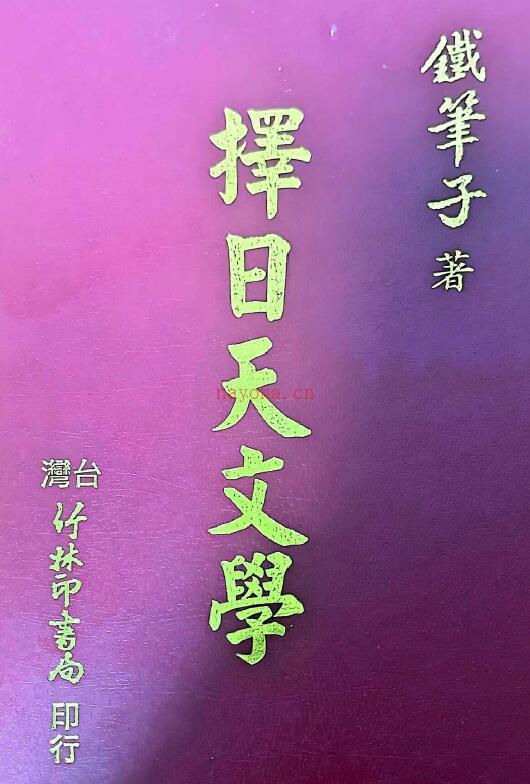 鐵筆子 著
擇日天文學
nayona.cn
台灣
竹林印書局
印行